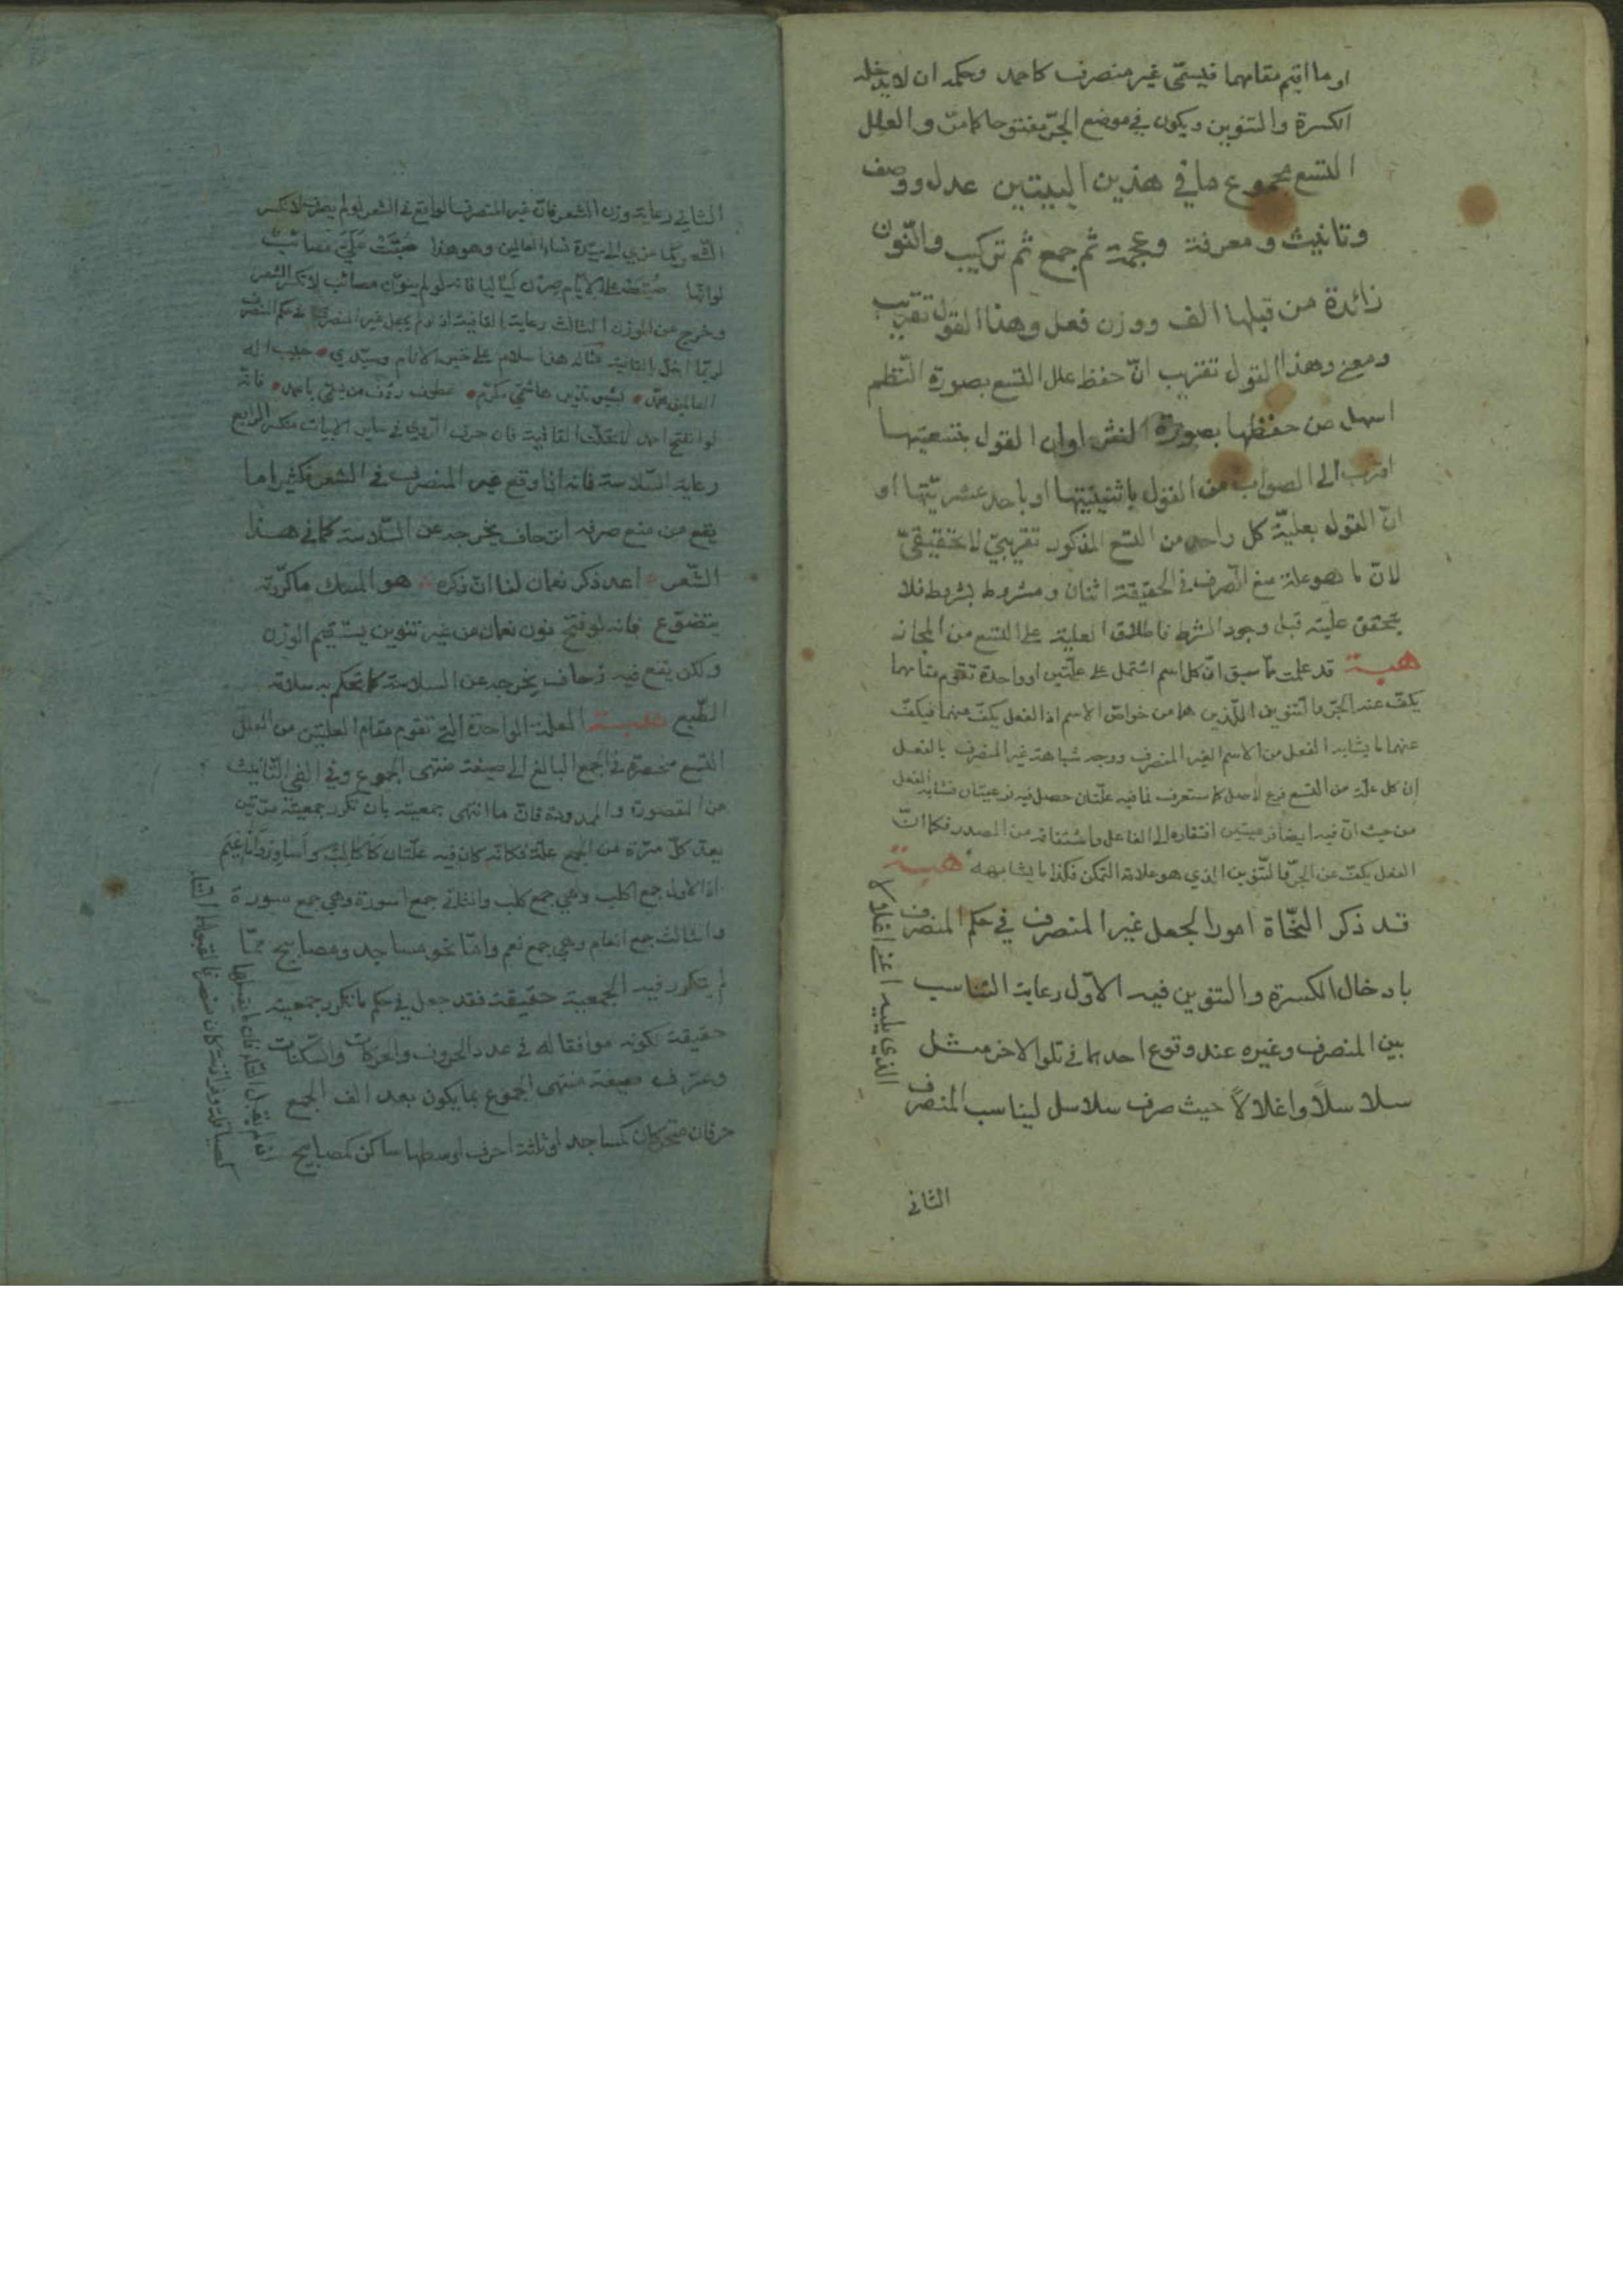 او ما اقيم مقامهما فيسمّى غير منصرف كاحمد وحكمه ان لا يدخله
الكسرة والتنوين ويكون في موضع الجرّ مفتوحا كما مرّ والعلل
التسع مجموع ما في هذين البيتين عدل ووصف
وتانيث ومعرفة وعجمة ثم جمع ثم تركيب والنّون
زائدة من قبلها الف ووزن فعل وهذا القول تقريب
ومعنى وهذا القول تقريب انّ حفظ علل التسع بصورة النّظم
اسهل من حفظها بصورة النثر اوان القول بتسعيّتها
اقرب الى الصواب من القول باثنينيتها او باحد عشريّتها او
انّ القول بعليّة كل واحد من التسع المذكور تقريبيّ لا تحقيقيّ
لانّ ما هو علة منع الصّرف في الحقيقة اثنان ومشروط بشرط فلا
يتحقق عليته قبل وجود الشرط فاطلاق العلية على التسع من المجاز
هبة قد علمت ممّا سبق انّ كل اسم اشتمل على علّتين او واحدة تقوم مقامهما
يكفّ عنه الجرّ والتنوين اللّذين هما من خواصّ الاسم اذ الفعل يكفّ عنهما فيكفّ
عنهما ما يشابه الفعل من الاسم الغير المنصرف ووجه شباهة غير المنصرف بالفعل
ان كل علّة من التسع فرع لاصل كما ستعرف فما فيه علّتان حصل فيه فرعيتان فشابه الفعل
من حيث انّ فيه ايضا فرعيتين افتقاره الى الفاعل واشتقاقه من المصدر فكما انّ
الفعل يكفّ عن الجرّ والتّنوين الذي هو علامة التمكن فكذا ما يشابهه هبة
قد ذكر النّحاة امورا لجعل غير المنصرف في حكم المنصرف
بادخال الكسرة والتنوين فيه الاوّل رعاية التناسب
بين المنصرف وغيره عند وقوع احدهما في تلو الاخر مثل
سلاسلاً واغلالاً حيث صرف سلاسل ليناسب المنصرف
الذي يليه اعني اغلالا
الثاني
الثاني رعاية وزن الشعر فانّ غير المنصرف الواقع في الشعر لو لم يصرف لانكسر
الشعر كما سيدة نساء العالمين وهو هذا صُبّتْ عَلَيَّ مَصائبٌ
لو انّها صُبّت على الايّام صِرْن لَيَاليا فانه لو لم ينوّن مصائب لانكسر الشعر
وخرج عن الوزن الثالث رعاية القافية اذ لو لم يجعل غير المنصرف في حكم المنصرف
لربّما اختل القافية مثاله هذا سلام على خير الانام وسيّدي حبيب اله
العالمين محمّد بشير نذير هاشميّ مكرّم عطوف رؤف من يسمّى باحمد فانّه
لو انفتح احمد لاختلّت القافية فان حرف الرّويّ في سائر الابيات منكسر الرابع
رعاية السّلاسة فانه اذا وقع غير المنصرف في الشعر فكثيرا ما
يقع من منع صرفه زحاف يخرجه عن السّلاسة كما في هذا
الشّعر اعد ذكر نعمان لنا انّ ذكره هو المسك ما كرّرته
يتضوّع فانه لو فتح نون نعمان من غير تنوين يستقيم الوزن
ولكن يقع فيه زحاف يخرجه عن السلاسة كما تحكم به سلامة
الطّبع هبة العلّة الواحدة التي تقوم مقام العلتين من العلل
التسع منحصرة في الجمع البالغ الى صيغة منتهى الجموع وفي الفي التّانيث
من المقصورة والممدودة فانّ ما انتهى جمعيته بان تكرر جمعيته مرّتين
يعدّ كلّ مرّة من الجمع علّة فكانّه كان فيه علّتان كاَكالِبَ واَساوِرَ واَناعِيمَ
اذ الاول جمع اكلب وهي جمع كلب والثاني جمع اسورة وهي جمع سورة
والثالث جمع انعام وهي جمع نعم وامّا نحو مساجد ومصابيح ممّا
لم يتكرر فيه الجمعية حقيقة فقد جعل في حكم ما تكرر جمعيته
حقيقة لكونه موافقا له في عدد الحروف والحركات والسّكنات
وعرّف صيغة منتهى الجموع بما يكون بعد الف الجمع
حرفان متحركان كمساجد او ثلثة احرف اوسطها ساكن كمصابيح